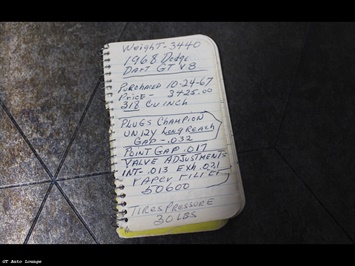 Weight-3440
1968 Dodge
Dart GT V8
Purchased 10-24-67
Price - 3425.00
318 Cu inch
PLUGS CHAMPION
UN12Y Long Reach
GAP - .032
POINT GAP .017
VALVE ADJUSTMENTS
INT- .013 EXH .021
PAPER FILTER
50600
TIRES PRESSURE
30 LBS
GT Auto Lounge